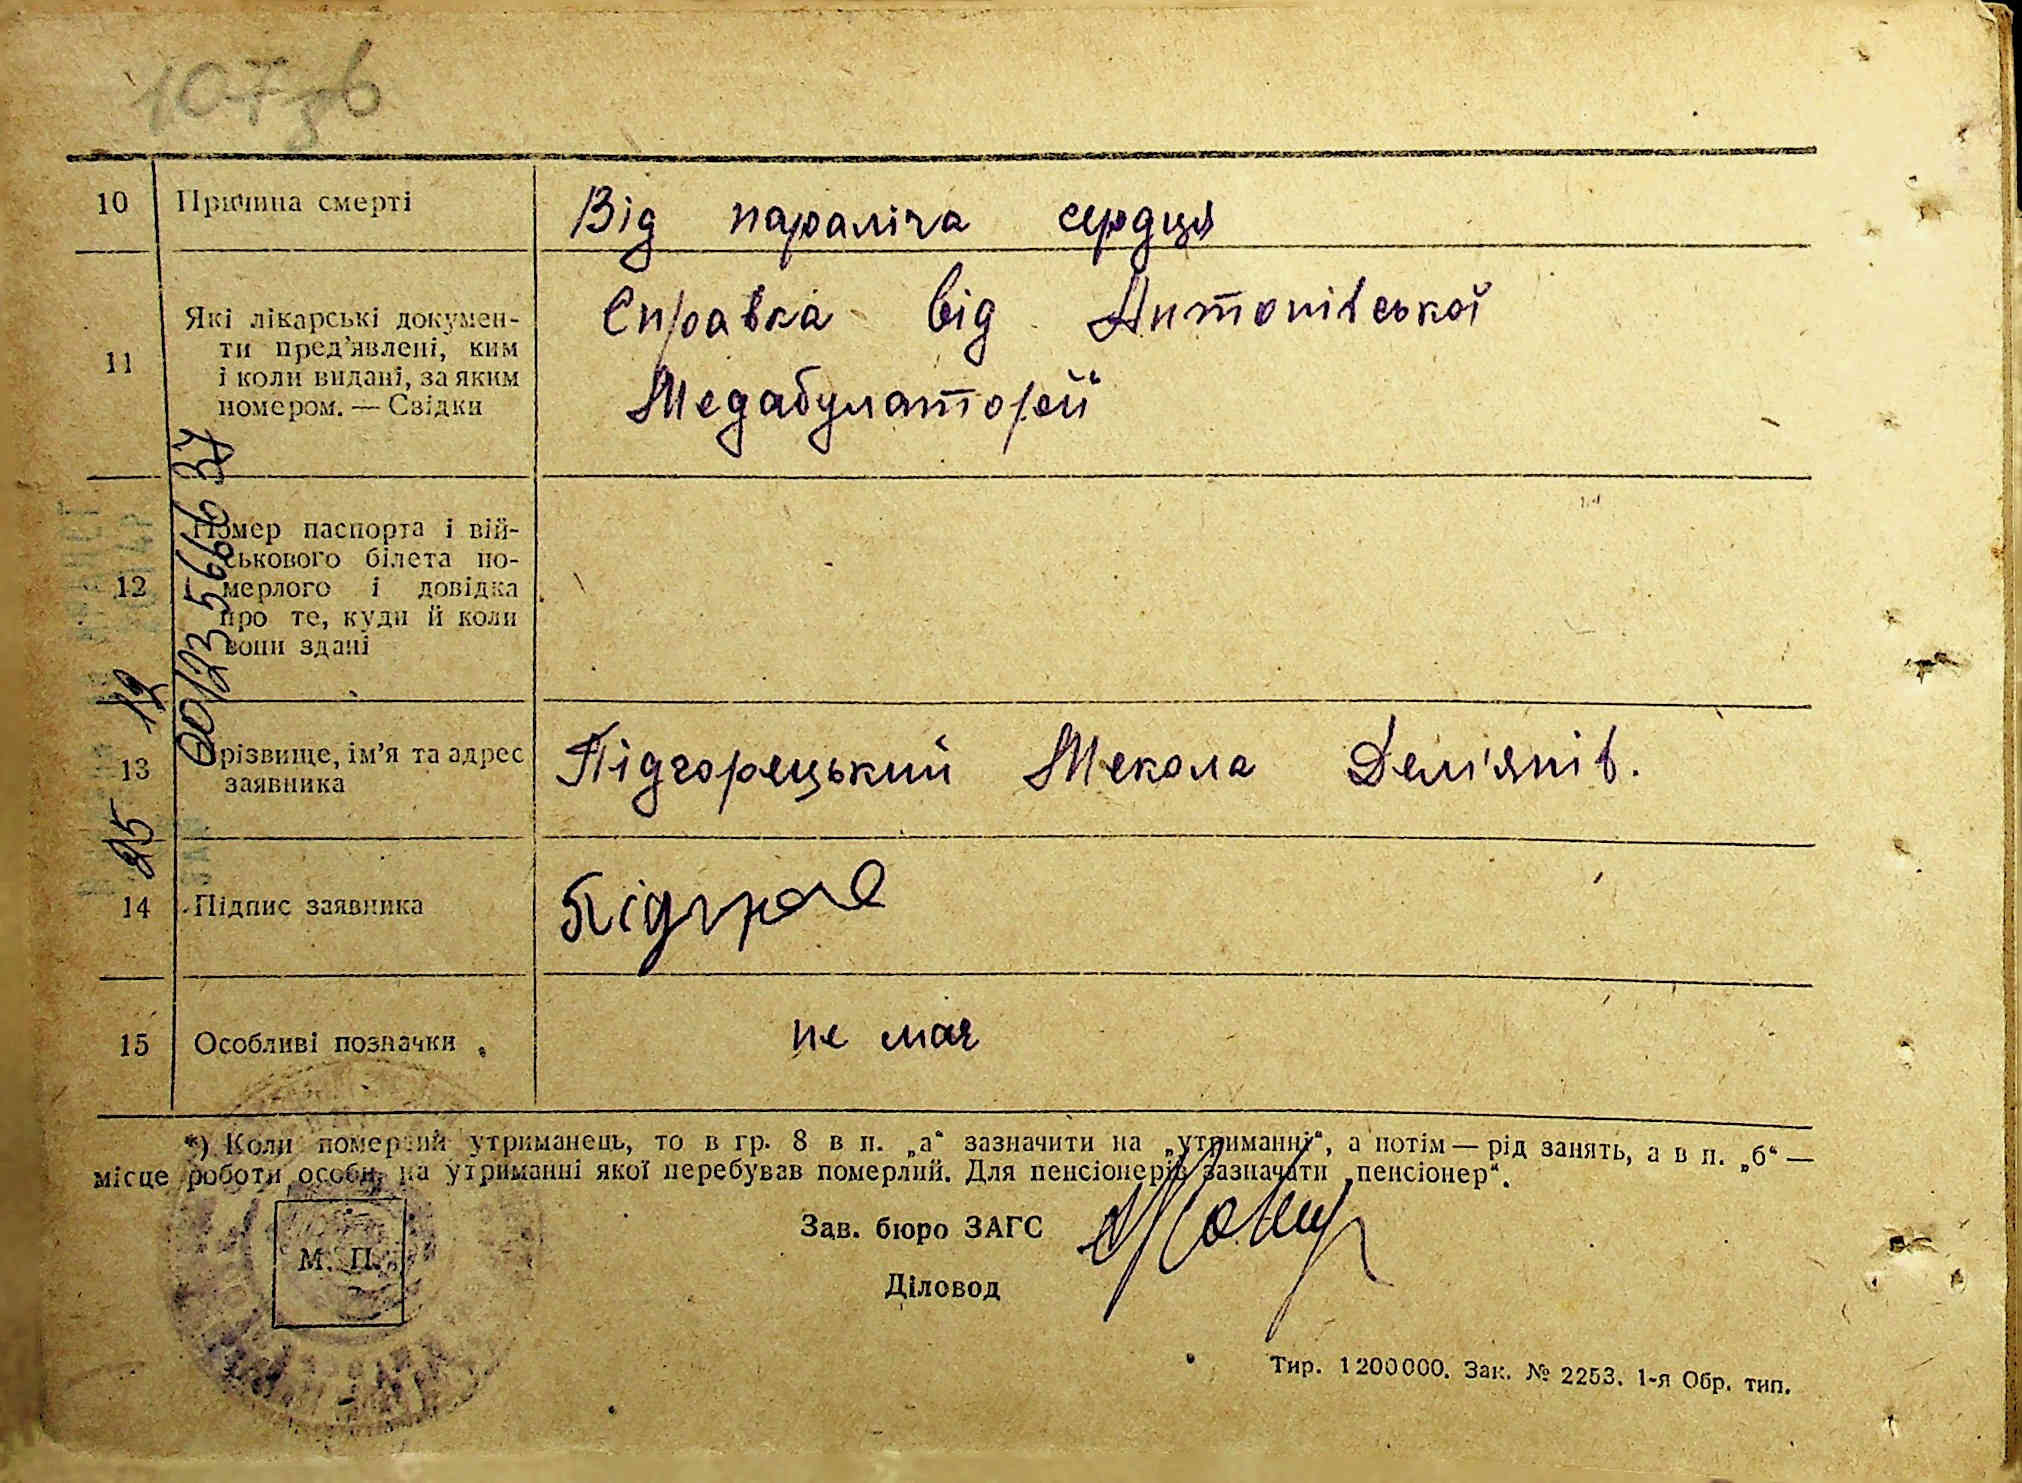 107зв
10 Причина смерті Від параліча сердця
11 Які лікарські докумен-
ти пред'явлені, ким
і коли видані, за яким
номером. — Свідки
Справка від Антонівської
Медабулаторєй
12 Номер паспорта і вій-
ськового білета по-
мерлого і довідка
про те, куди й коли
вони здані
13 Прізвище, ім'я та адрес
заявника
Підгорецький Мекола Дем'янів.
14 Підпис заявника
15 Особливі позначки не має
*) Коли померлий утриманець, то в гр. 8 в п. „а“ зазначити на „утриманні“, а потім — рід занять, а в п. „б“ —
місце роботи особи, на утриманні якої перебував померлий. Для пенсіонерів зазначати „пенсіонер“.
М. П.
Зав. бюро ЗАГС
Діловод
Тир. 1200000. Зак. № 2253. 1-я Обр. тип.
25 12